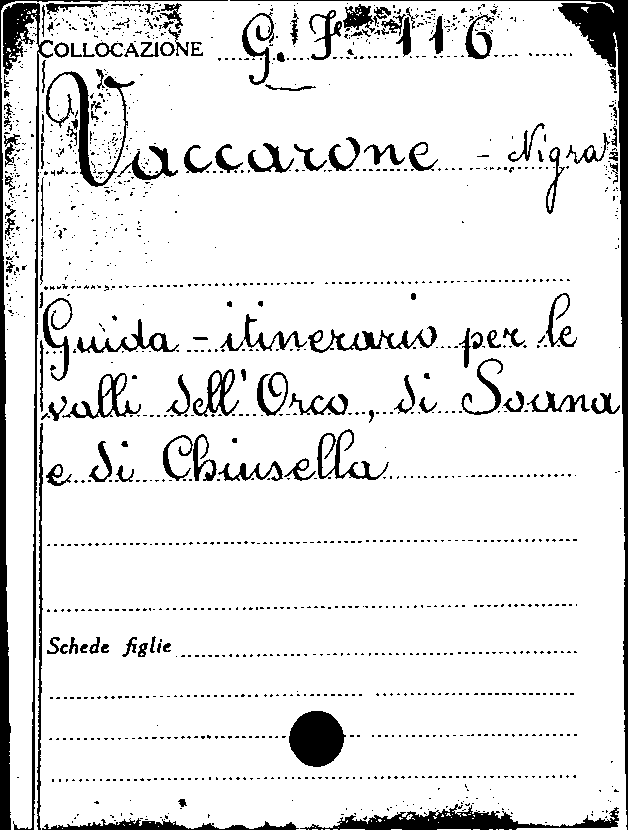 COLLOCAZIONE G. F. 116
Vaccarone - Nigra
Guida - itinerario per le
valli dell'Orco, di Soana
e di Chiusella
Schede figlie